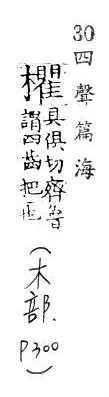 30 四聲篇海
欋 具俱切齊魯
謂四齒把也
(木部. P300)